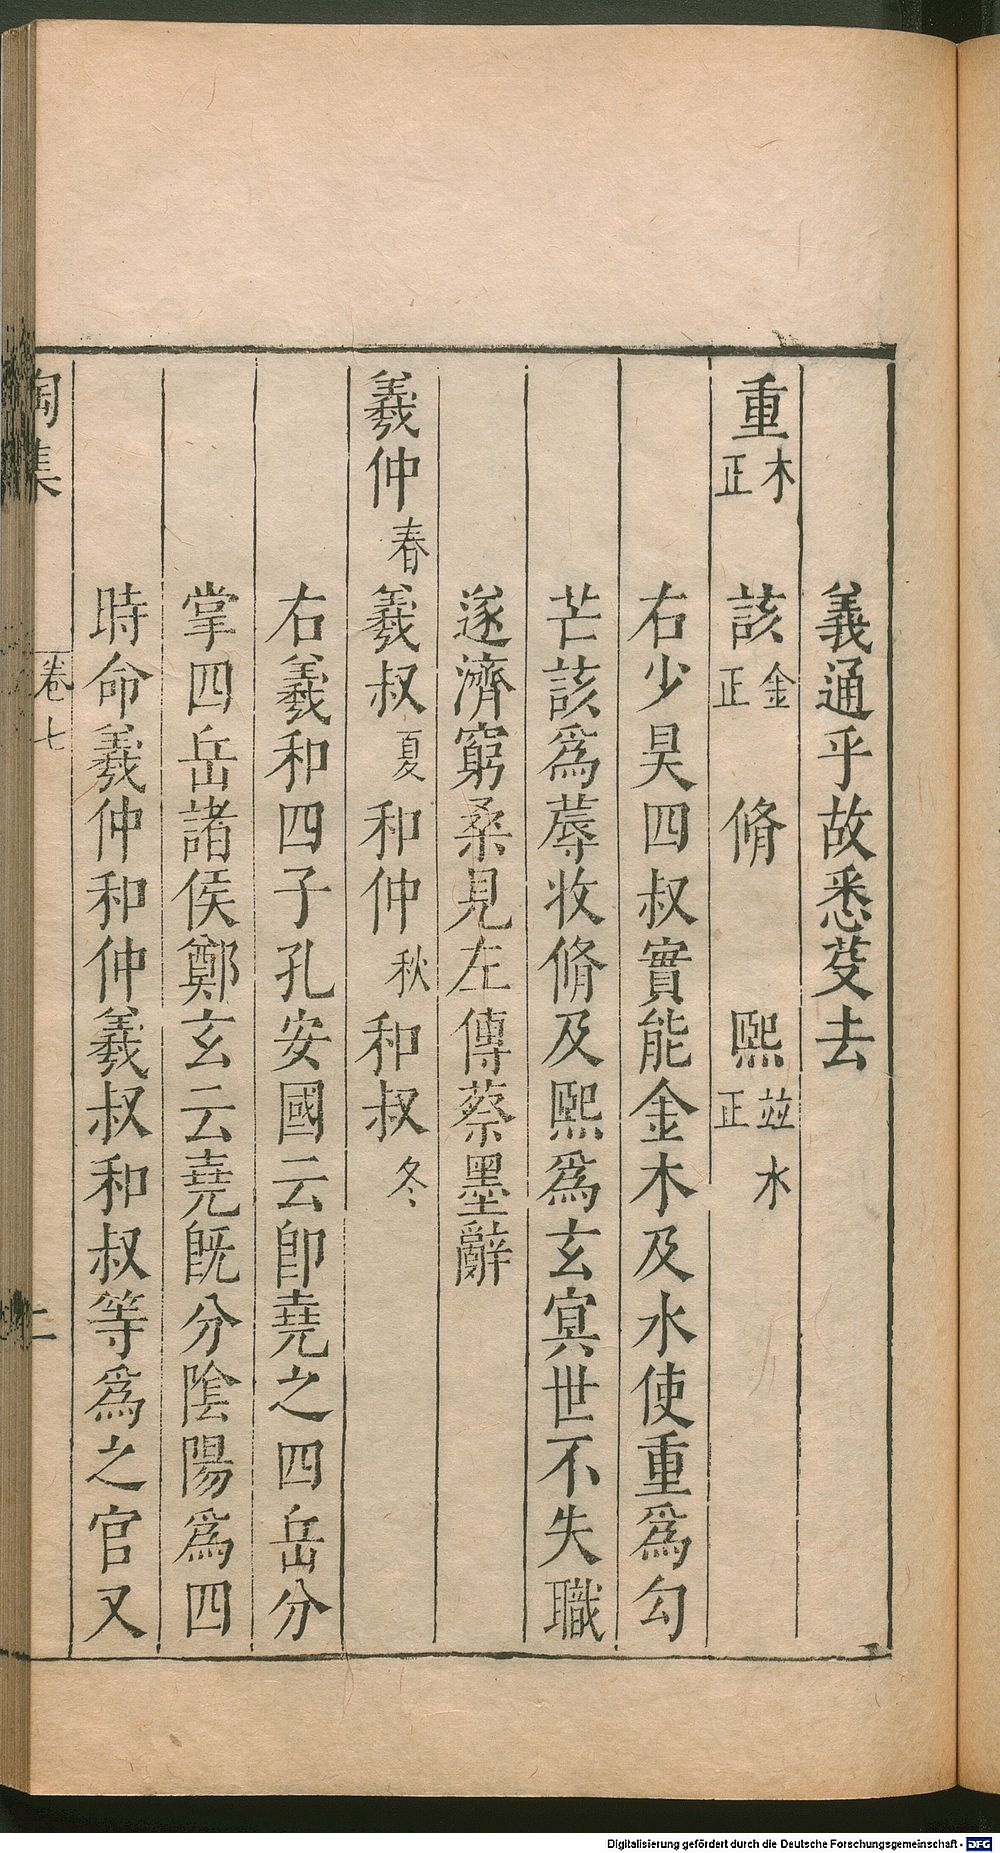 義通乎故悉芟去
重木正 該金正 脩 熙竝水正
右少昊四叔實能金木及水使重爲勾
芒該爲蓐收脩及熙爲玄冥世不失職
遂濟窮桑見左傳蔡墨辭
羲仲春羲叔夏和仲秋和叔冬
右羲和四子孔安國云卽堯之四岳分
掌四岳諸侯鄭玄云堯旣分陰陽爲四
時命羲仲和仲羲叔和叔等爲之官又
陶集 卷七 二
Digitalisierung gefördert durch die Deutsche Forschungsgemeinschaft - DFG